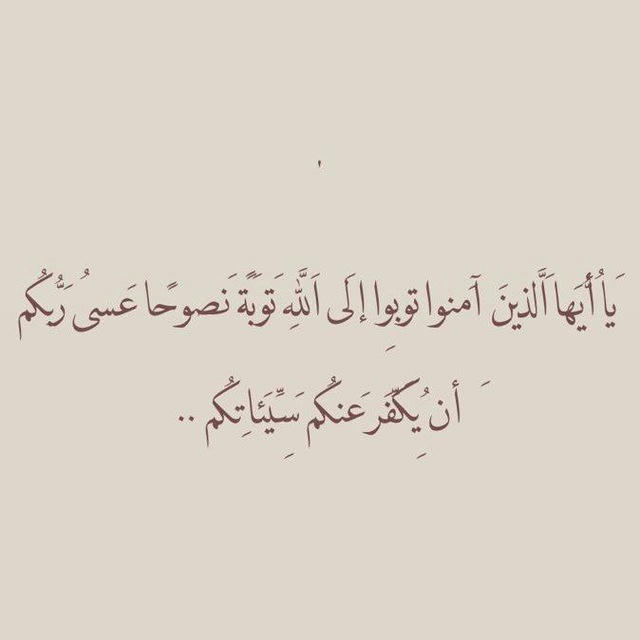 يَا أُيَها اَلَّذينَ آَمنوا توبِوا إلَى اَللَّهِ تَوبَةً نَصوحًا عَسىُ رَبُّكُم
أَن يُكِفَّرَ عَنكُم سَيِّئَاتِكُم ..